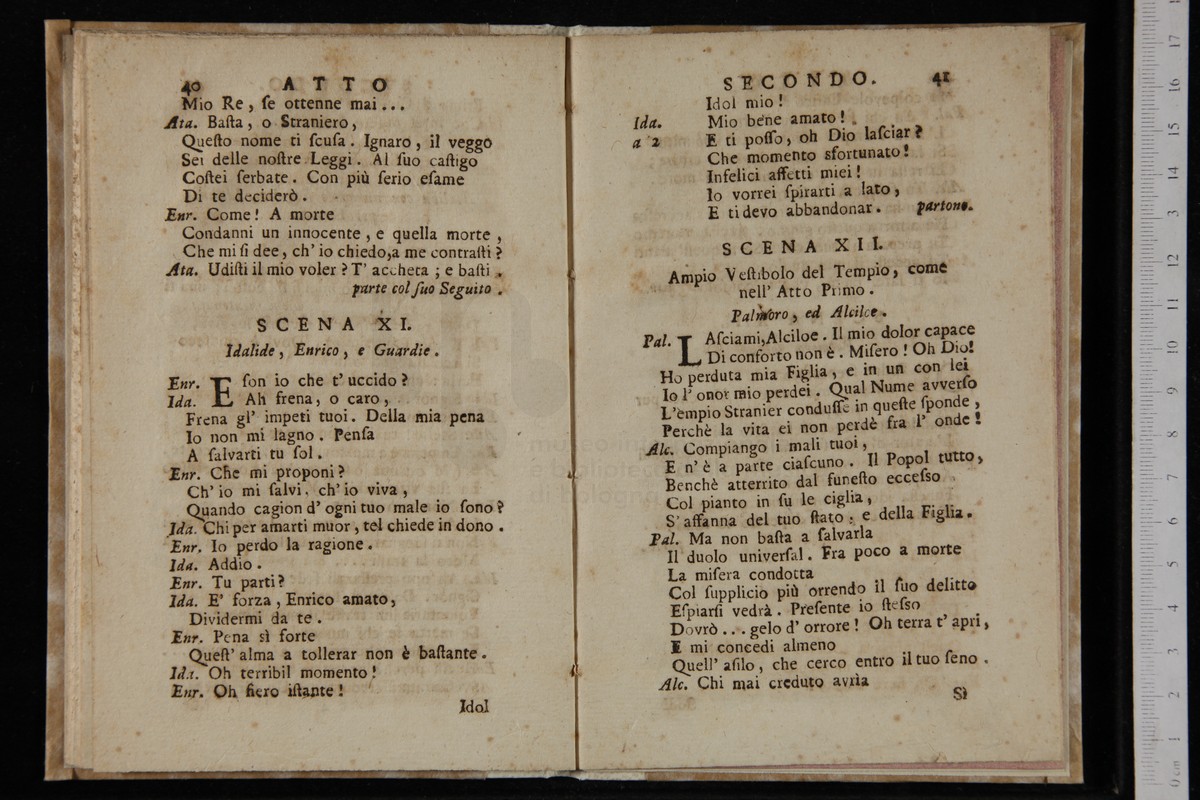 40 ATTO
Mio Re, ſe ottenne mai...
Ata. Baſta, o Straniero,
Queſto nome ti ſcuſa. Ignaro, il veggo
Sei delle noſtre Leggi. Al ſuo caſtigo
Coſtei ſerbate. Con più ſerio eſame
Di te deciderò.
Enr. Come! A morte
Condanni un innocente, e quella morte,
Che mi ſi dee, ch' io chiedo, a me contraſti?
Ata. Udiſti il mio voler? T' accheta; e baſti.
parte col ſuo Seguito.
SCENA XI.
Idalide, Enrico, e Guardie.
Enr. E ſon io che t' uccido?
Ida. Ah frena, o caro,
Frena gl' impeti tuoi. Della mia pena
Io non mi lagno. Penſa
A ſalvarti tu ſol.
Enr. Che mi proponi?
Ch' io mi ſalvi, ch' io viva,
Quando cagion d' ogni tuo male io ſono?
Ida. Chi per amarti muor, tel chiede in dono.
Enr. Io perdo la ragione.
Ida. Addio.
Enr. Tu parti?
Ida. E' forza, Enrico amato,
Dividermi da te.
Enr. Pena sì forte
Queſt' alma a tollerar non è baſtante.
Ida. Oh terribil momento!
Enr. Oh fiero iſtante!
Idol
SECONDO. 41
Idol mio!
Ida. Mio bene amato!
a 2 E ti poſſo, oh Dio laſciar?
Che momento sfortunato!
Infelici affetti miei!
Io vorrei ſpirarti a lato,
E ti devo abbandonar. partono.
SCENA XII.
Ampio Veſtibolo del Tempio, come
nell' Atto Primo.
Palmoro, ed Alciloe.
Pal. LAſciami, Alciloe. Il mio dolor capace
Di conforto non è. Miſero! Oh Dio!
Ho perduta mia Figlia, e in un con lei
Io l' onor mio perdei. Qual Nume avverſo
L'èmpio Stranier conduſſe in queſte ſponde,
Perchè la vita ei non perdè fra l' onde!
Alc. Compiango i mali tuoi,
E n' è a parte ciaſcuno. Il Popol tutto,
Benchè atterrito dal funeſto ecceſso
Col pianto in ſu le ciglia,
S' affanna del tuo ſtato, e della Figlia.
Pal. Ma non baſta a ſalvarla
Il duolo univerſal. Fra poco a morte
La miſera condotta
Col ſupplicio più orrendo il ſuo delitto
Eſpiarſi vedrà. Preſente io ſteſso
Dovrò... gelo d' orrore! Oh terra t' apri,
E mi concedi almeno
Quell' aſilo, che cerco entro il tuo ſeno.
Alc. Chi mai creduto avria
Sì